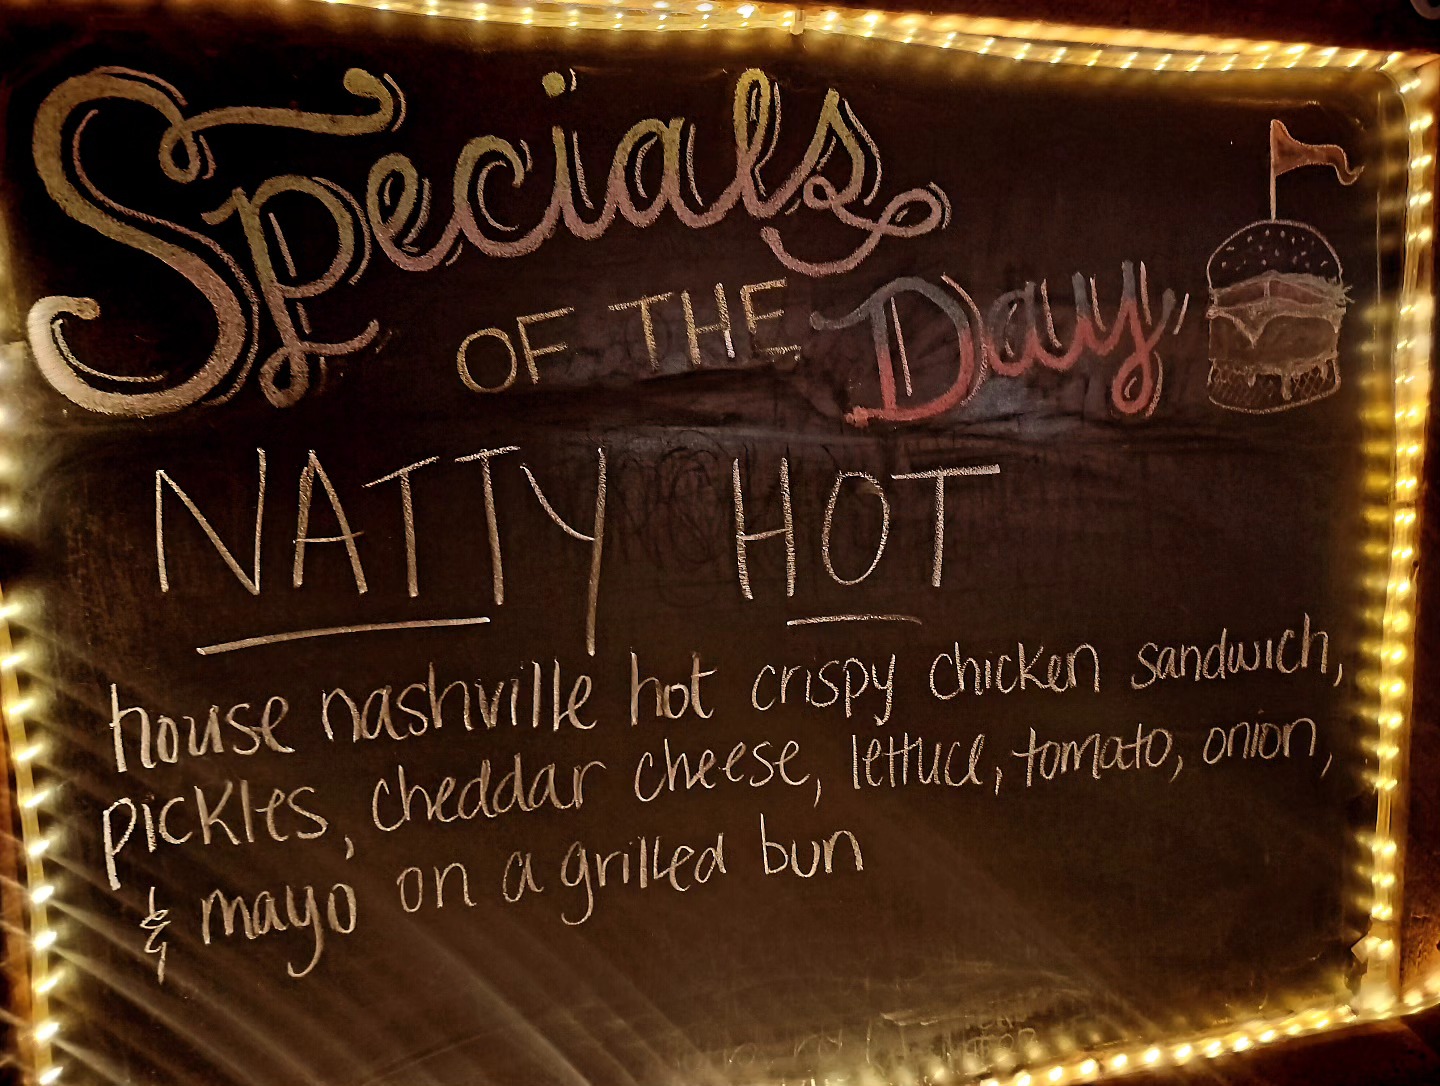 Specials
OF THE Day
NATTY HOT
house nashville hot crispy chicken sandwich,
pickles, cheddar cheese, lettuce, tomato, onion,
& mayo on a grilled bun